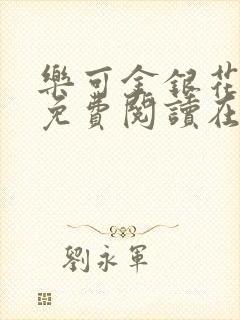 樂可金銀花
免費閱讀在
劉永軍